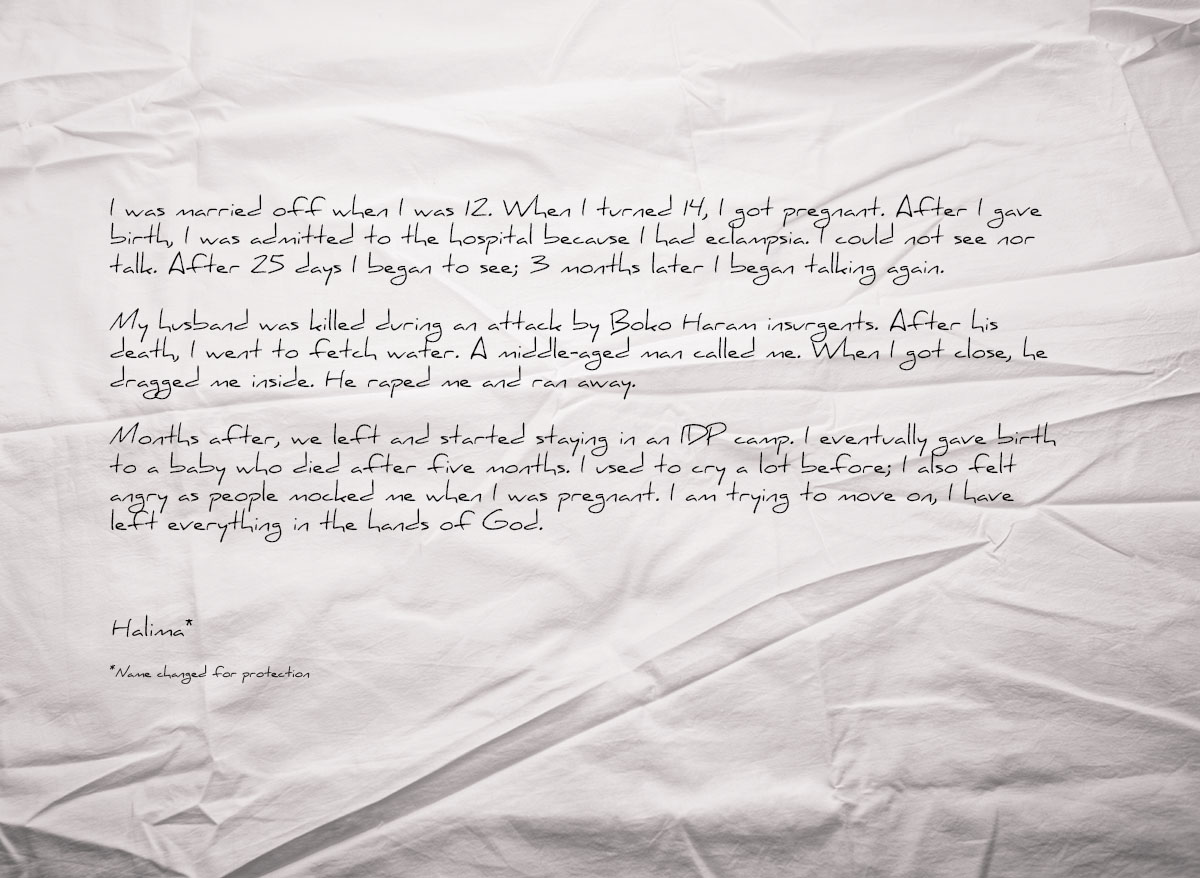 I was married off when I was 12. When I turned 14, I got pregnant. After I gave
birth, I was admitted to the hospital because I had eclampsia. I could not see nor
talk. After 25 days I began to see; 3 months later I began talking again.
My husband was killed during an attack by Boko Haram insurgents. After his
death, I went to fetch water. A middle-aged man called me. When I got close, he
dragged me inside. He raped me and ran away.
Months after, we left and started staying in an IDP camp. I eventually gave birth
to a baby who died after five months. I used to cry a lot before; I also felt
angry as people mocked me when I was pregnant. I am trying to move on, I have
left everything in the hands of God.
Halima*
*Name changed for protection